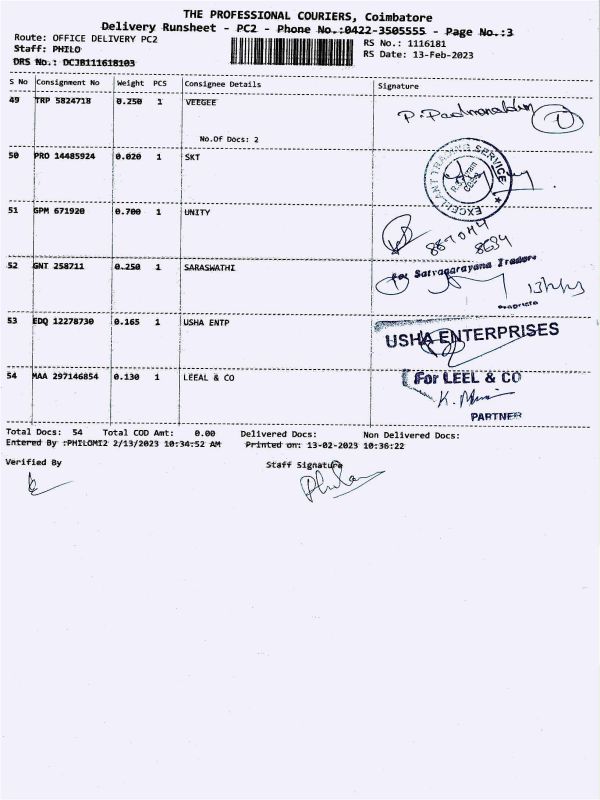 THE PROFESSIONAL COURIERS, Coimbatore
Delivery Runsheet - PC2 - Phone No.:0422-3505555 - Page No.:3
Route: OFFICE DELIVERY PC2
RS No.: 1116181
Staff: PHILO
RS Date: 13-Feb-2023
DRS No.: DCJB111618103
S No Consignment No Weight PCS Consignee Details Signature
49 TRP 5824718 0.250 1 VEEGEE
P. Padmanabhan 1
No.Of Docs: 2
50 PRO 14485924 0.020 1 SKT
EXCELLANT TRADING SERVICE
51 GPM 671920 0.700 1 UNITY
8694
52 GNT 258711 0.250 1 SARASWATHI
For Satyanarayana Traders
53 EDQ 12278730 0.165 1 USHA ENTP
USHA ENTERPRISES
54 MAA 297146854 0.130 1 LEEAL & CO
For LEEL & CO
PARTNER
Total Docs: 54 Total COD Amt: 0.00 Delivered Docs: Non Delivered Docs:
Entered By :PHILOMI2 2/13/2023 10:34:52 AM Printed on: 13-02-2023 10:36:22
Verified By Staff Signature